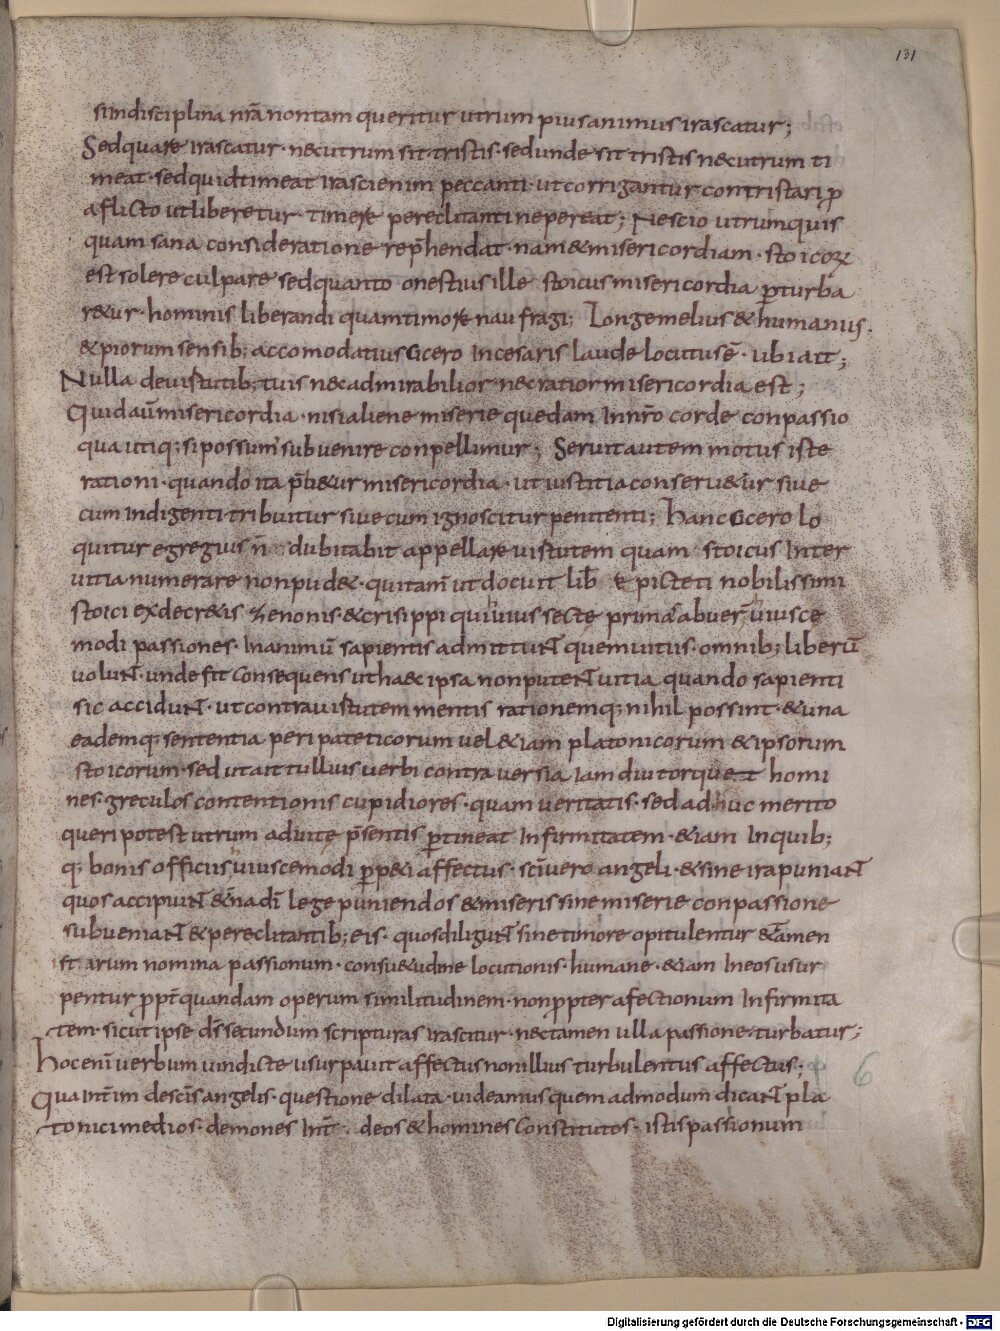 131
sundisciplina nr̄a nontam queritur utrum pius animus irascatur;
Sedquare irascatur· necutrum sit· tristis· sedunde sit tristis necutrum ti
meat· sedquidtimeat irascienim peccanti· ut corrigantur contristari ꝓ
aflicto utliberetur· timere pereclitanti nepereat; Nescio utrumquis
quam sana consideratione rep̄hendat· nam & misericordiam· stoicoꝝ
est solere culpare sedquanto onestius ille stoicus misericordia ꝑturba
r&ur· hominis liberandi quamtimore naufragi; Longemelius & humanius·
& piorum sensib; accomodatius Cicero Incesaris laude locutus ē· ubi ait;
Nulla deuirtutib; tuis nec admirabilior· nec ratior misericordia est;
Quid aūmisericordia· nisi aliene miserie quedam Innr̄o corde conpassio
qua utiq; si possum' subuenire conpellimur; Seruit autem motus iste
rationi· quando ita p̄b&ur misericordia· ut iustitia conseru&ur siue
cum indigenti tribuitur siue cum ignoscitur penitenti; Hanc Cicero lo
quitur egregius n̄ dubitabit appellare uirtutem quam stoicus Inter
uitia numerare nonpud&· quitam̄ ut docuit lib̄ epicteti nobilissimi
stoici exdecr&is Zenonis· & crisippi qui huius secte prima abuer̄ uiusce
modi passiones· Inanimū sapientis admittunt quem uitiis· omnib; liberū
uolunt· unde fit consequens ut ha& ipsa nonputent uitia quando sapienti
sic accidunt· ut contrauirtutem mentis rationemq; nihil possint· & una
eademq; sententia peripateticorum uel &iam platonicorum & ipsorum
stoicorum· sed ut ait tullius uerbi contrauersia iam diu torquet homi
nes· greculos contentionis cupidiores· quam ueritatis· sed adhuc merito
queri potest utrum aduite p̄sentis ꝑtineat Infirmitatem· &iam Inquib;
q; bonis officiis huiuscemodi ꝑp&i affectus· sc̄i uero angeli· & sine ira puniant
quos accipiunt &̄na dī lege puniendos & miseris sine miserie conpassione
subueniant & pereclitantib; eis· quosdiligunt sine timore opitulentur & tamen
istarum nomina passionum· consu&udine locutionis· humane· &iam Ineos usur
pentur ꝓpt̄ quandam operum similitudinem· non ꝓpter afectionum Infirmita
tem· sicut ipse ds̄ secundum scripturas irascitur· nectamen ulla passione turbatur;
Hoc enī uerbum uindicte usurpauit affectus non illius turbulentus affectus;
Qua int̄im desc̄is angelis· questione dilata· uideamus quem admodum dicant pla
tonici medios· demones Int̄ deos & homines Constitutos· istis passionum
6
Digitalisierung gefördert durch die Deutsche Forschungsgemeinschaft - DFG